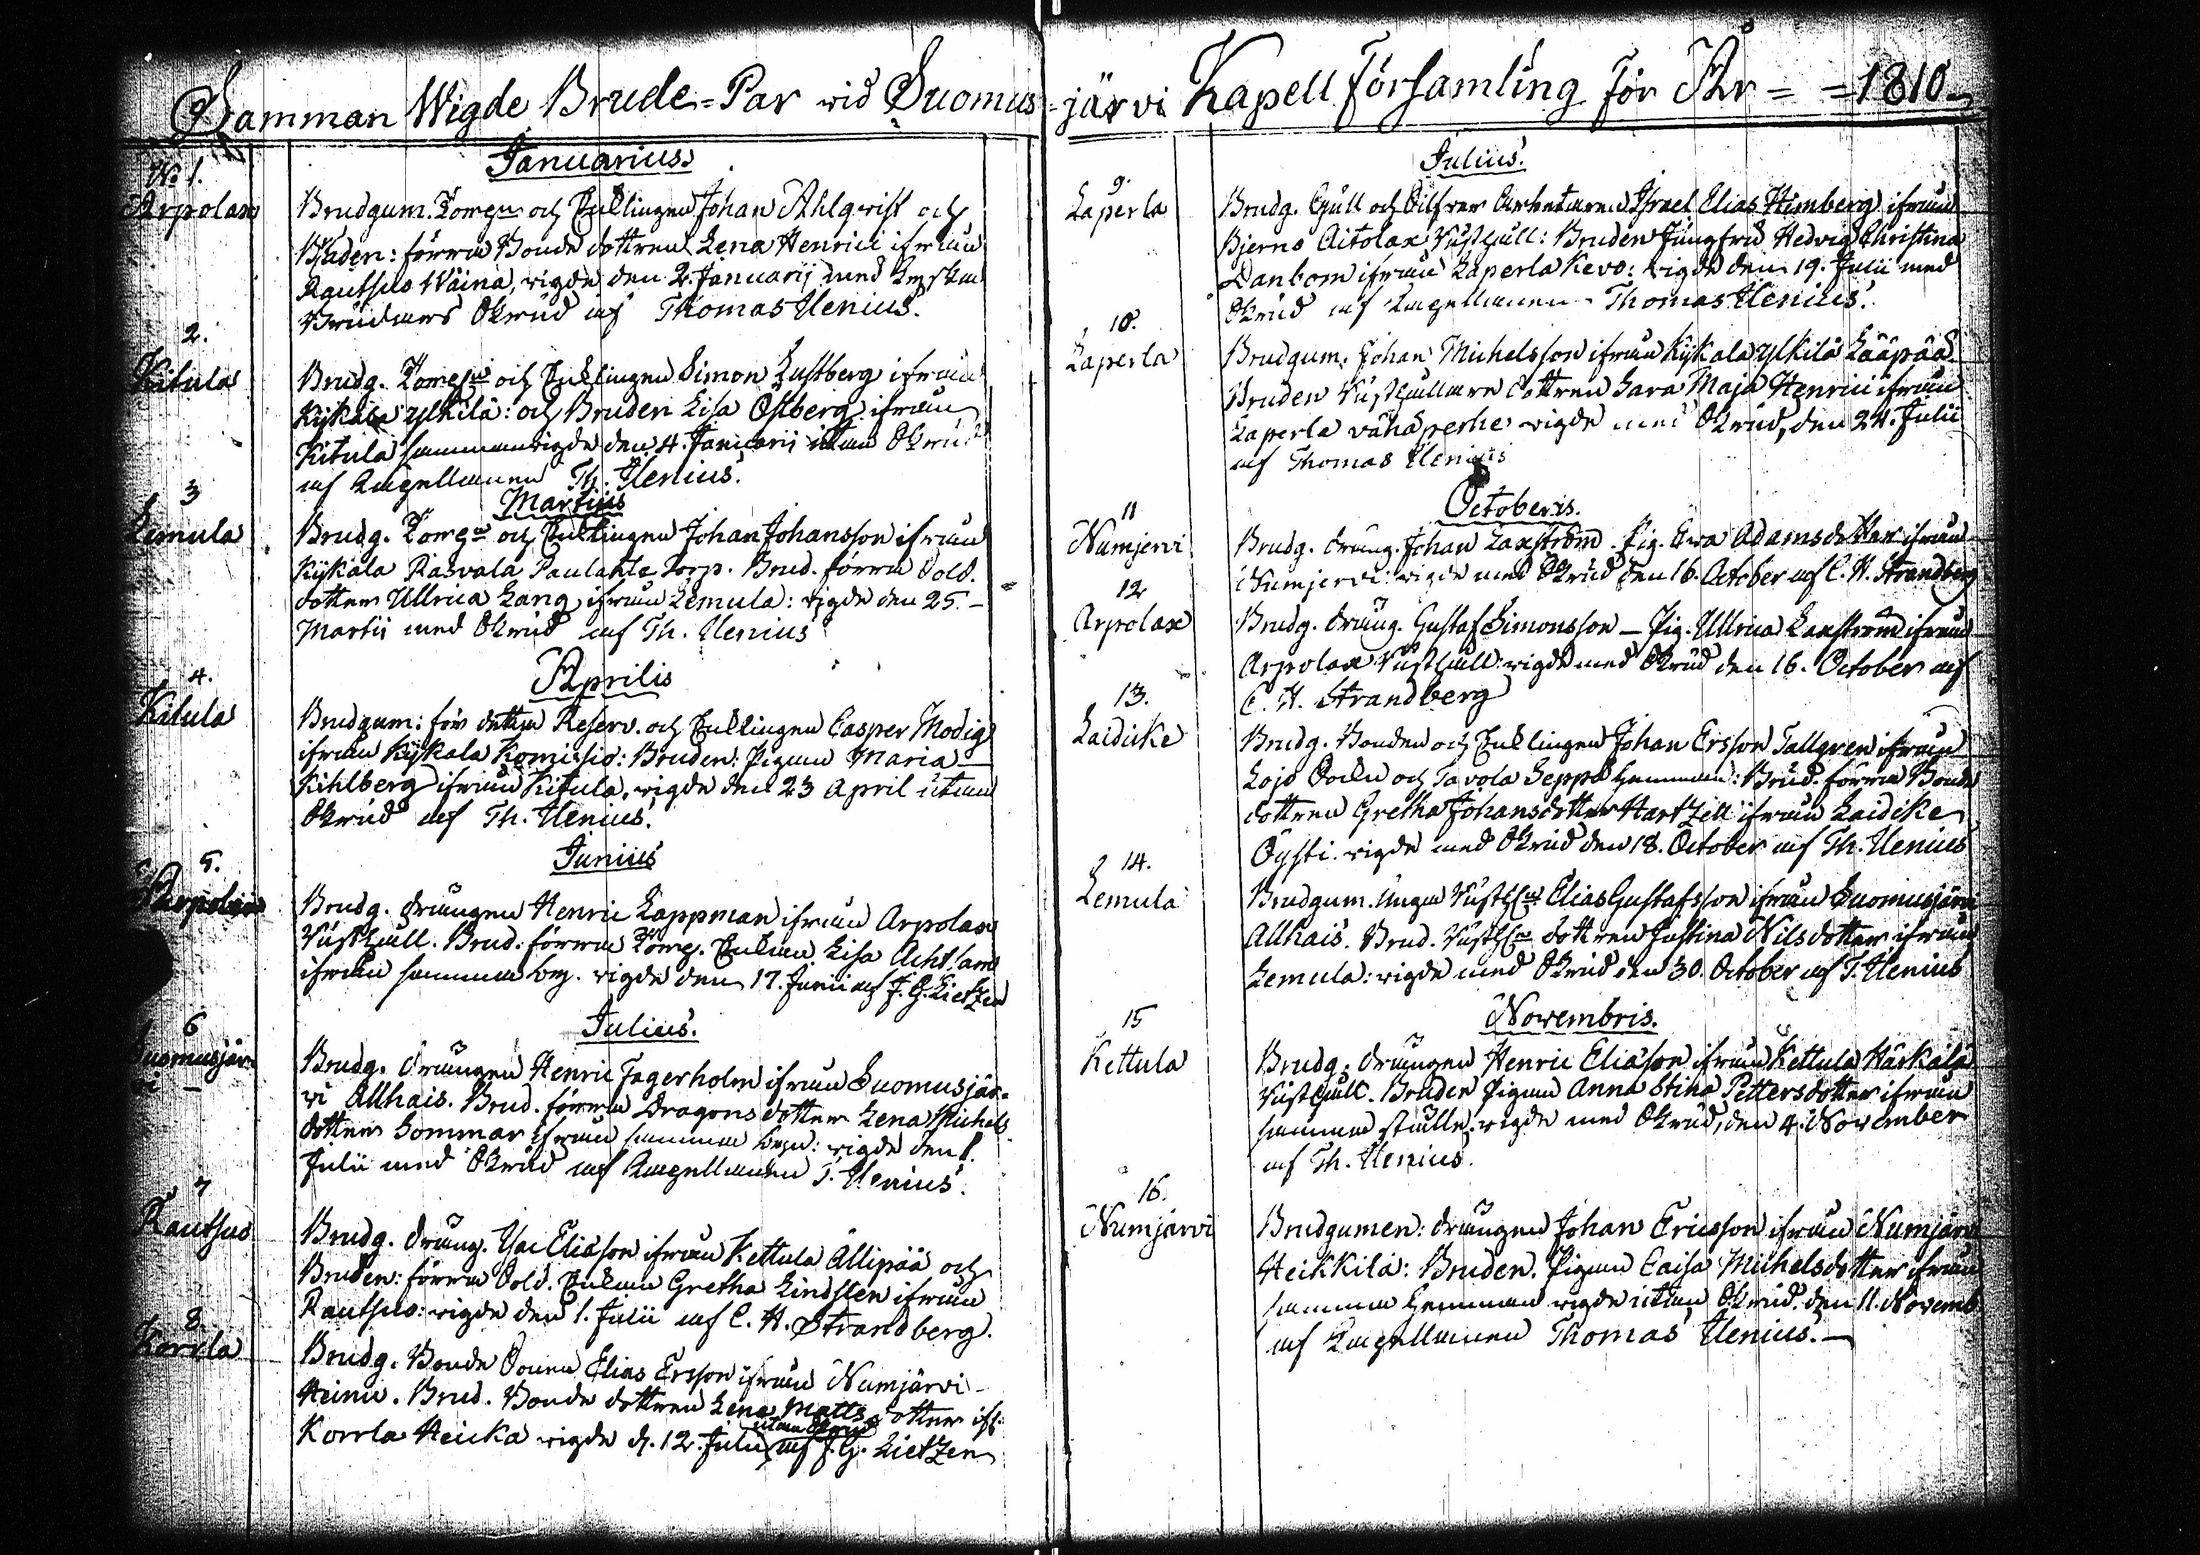 Samman Wigde Brude=Par wid Suomus=järvi Kapell Församling för År = =1810_
Januarius
No 1.
Arpolax
Brudgum. och Enklingen Johan Ahlqvist och
Bruden: förra Bonde dottren Lena Henrici ifrån
Rautsuo Wäinä, vigde den 2 Januarii med
Okrud af Thomas Ilenius.
2.
Kitula
Brudg. och Enklingen Simon Lustberg ifrån
Kijkala Ylkilä: och Bruden Lisa Ostberg ifrån
Kitula sammanvigde den 4. Januarii utan Okrud
af Capellanen Th. Ilenius.
Martius
3
Lemula
Brudg. och Enklingen Johan Johansson ifrån
Kijkala Rasvala Paulahle Torp. Brud. förra Sold.
dotter Ullrica Lang ifrån Lemula: vigde den 25. –
Martii med Okrud af Th. Ilenius
Aprilis
4.
Kitula
Brudgum: för detta Reserv. och Enklingen Casper Modig
ifrån Kijkala Komissio: Bruden: Pigan Maria
Kihlberg ifrån Kitula, vigde den 23 April utan
Okrud af Th. Ilenius.
Junius
5.
Arpolax
Brudg. drängen Henric Lappman ifrån Arpolax
Rusthåll. Brud. förra Enkan Lisa
ifrån samma by. vigde den 17. Junii af J. G. Lietzen
Julius.
6
Suomusjär-
vi –
Brudg. drängen Henric Fagerholm ifrån Suomusjär-
vi Allhais. Brud. förra Dragons dotter Lena Michels
dotter Sommar ifrån samma byn: vigde den 1.
Julii med Okrud af Capellanen T. Ilenius.
7
Rautsuo
Brudg. dräng. Isac Eliasson ifrån Kettula Ällipää och
Bruden: förra Sold. Enkan Gretha Lindsten ifrån
Rautsuo: vigde den 1. Julii af C. H. Strandberg.
8.
Korrla
Brudg. Bonde Sonen Elias Ersson ifrån Numjärvi
Heinu. Brud. Bonde dottren Lena Matts dotter ifr:
utan Okrud
Korrla Heicka vigde d. 12. Julii af J. G. Lietzen
Julius.
9.
Laperla
Brudg. Gull och Silfver Arbetaren Israel Elias Himberg ifrån
Bjerno Aitolax Rusthåll: Bruden Jungfru Hedvig Christina
Danbom ifrån Laperla Kevo: vigde den 19. Julii med
Okrud af Capellanen Thomas Ilenius.
10.
Laperla
Brudgum. Johan Michelsson ifrån Kijkala Ylkilä Lääpää
Bruden Rusthållare dottren Sara Maja Henrici ifrån
Laperla vähäperhe vigde med Okrud, den 24. Julii
af Thomas Ilenius
Octoberis.
11
Numjervi
Brudg. dräng. Johan Laxström. Pig. Eva Adamsdotter ifrån
Numjervi: vigde med Okrud den 16. October af C. H. Strandberg
12
Arpolax
Brudg. dräng. Gustaf Simonsson – Pig. Ullrica Laxström ifrån
Arpolax Rusthåll: vigde med Okrud den 16. October af
C. H. Strandberg
13.
Laidicke
Brudg. Bonden och Enklingen Johan Ersson Tallgren ifrån
Lojo Sockn och Tavola Seppä Hemman: Brud. förra Bonde
dottren Gretha Johansdotter Hartzell ifrån Laidike
Öysti. vigde med Okrud den 18. October af Th. Ilenius
14.
Lemula
Brudgum. Unga Elias Gustafsson ifrån Suomusjärvi
Allhais. Brud. dottren Justina Nilsdotter ifrån
Lemula: vigde med Okrud den 30. October af T. Ilenius
Novembris.
15
Kettula
Brudg: drängen Henric Eliasson ifrån Kettula Härkälä
Rusthåll. Bruden Pigan Anna Stina Pettersdotter ifrån
samma ställe. vigde med Okrud, den 4. November
af Th. Ilenius.
16.
Numjärvi
Brudgumen: drängen Johan Ericsson ifrån Numjärvi
Heikkilä: Bruden. Pigan Caisa Michelsdotter ifrån
samma Hemman vigde utan Okrud. den 11. Novemb.
af Capellanen Thomas Ilenius. –